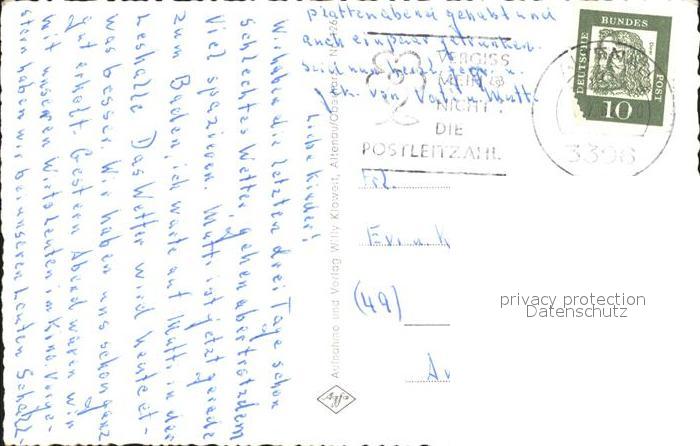 Liebe Kinder!
Wir haben die letzten drei Tage schon
schlechtes Wetter, gehen aber trotzdem
viel spazieren. Mutti ist jetzt gerade
zum Baden, ich warte auf Mutti in der
Leshalle. Das Wetter wird heute et-
was besser. Wir haben uns schon ganz
gut erholt. Gestern Abend waren wir
mit unseren Wirtsleuten im Kino. Vorge-
stern haben wir bei unseren Leuten Schall-
plattenabend gehabt und
auch ein paar getrunken.
Seid nun herzl. gegr. u.
gek. von Vati u. Mutti
Aufnahme und Verlag Willy Klawert, Altenau/Oberharz
Agfa
VERGISS
MEIN
NICHT
DIE
POSTLEITZAHL
3396
DEUTSCHE BUNDESPOST
10
Frl.
(49)
privacy protection
Datenschutz